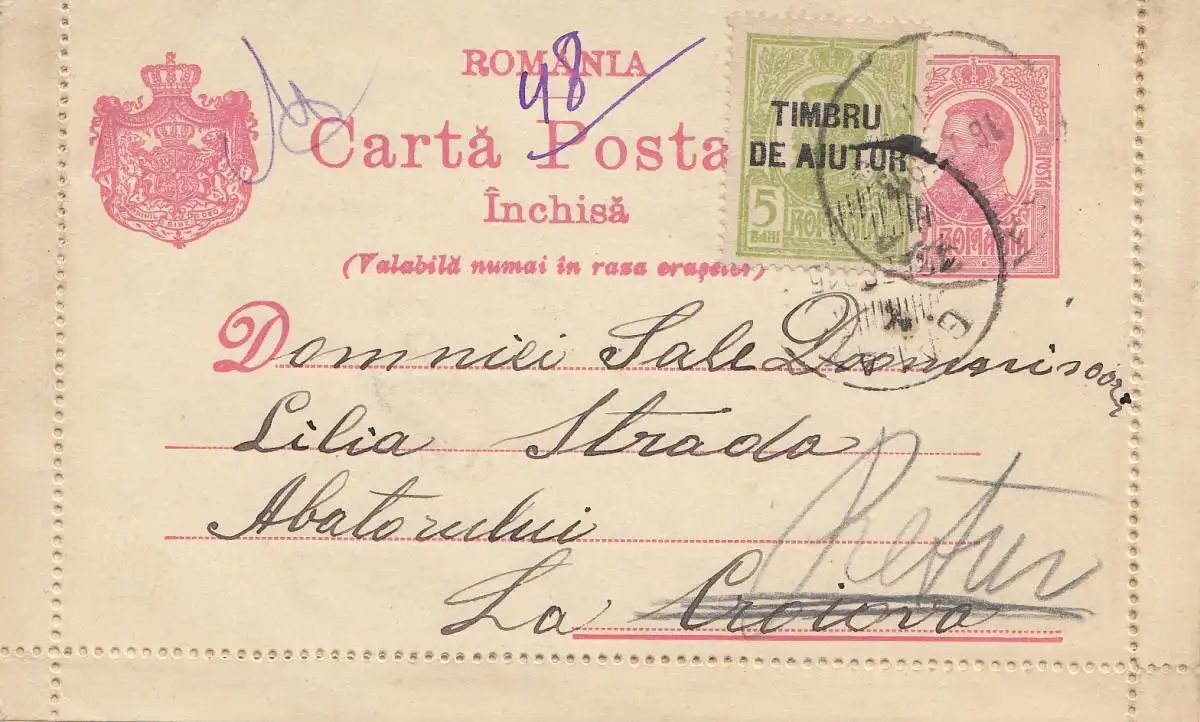 ROMÂNIA
48
Cartă Posta
Închisă
(Valabilă numai în raza orașelor)
TIMBRU
DE AJUTOR
5
BANI
ROMANIA
ROMANIA
Domniei Sale Domnisoare
Lilia Strada
Abatorului
La Croiova
Retur